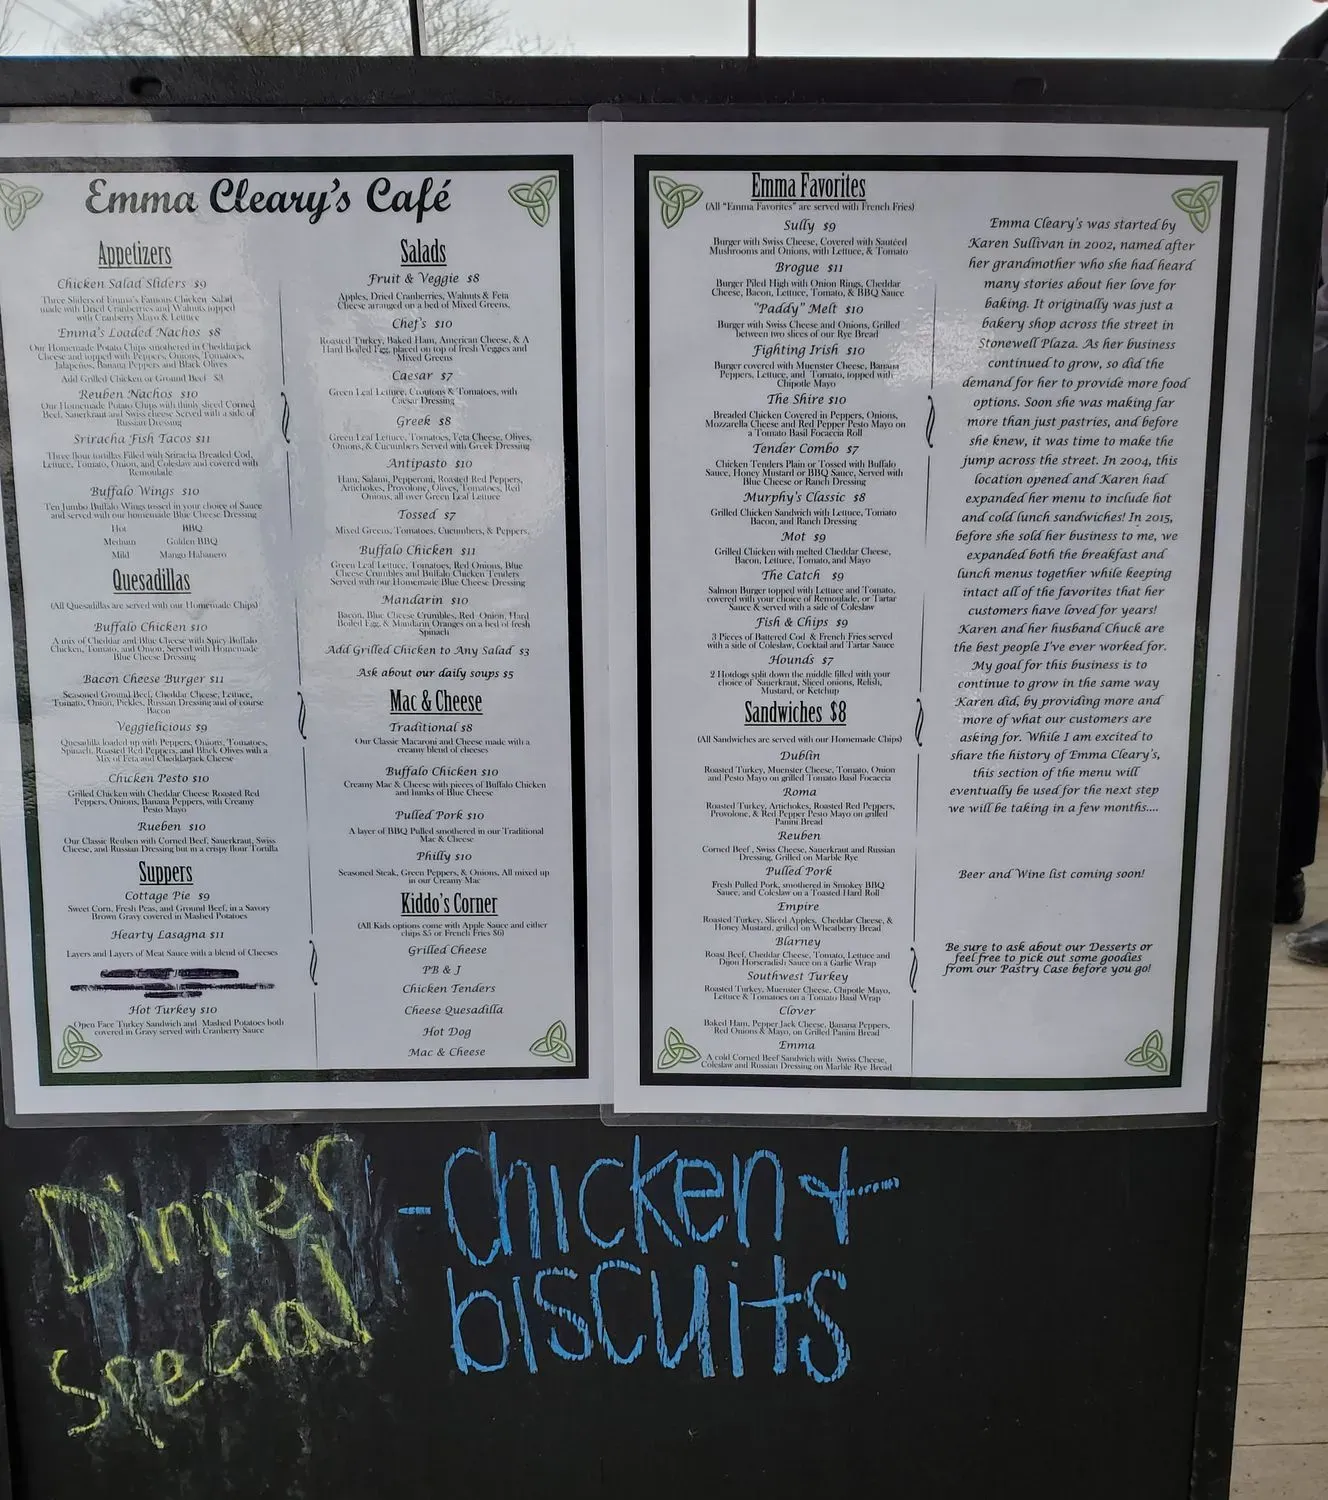 Emma Cleary's Café
Appetizers
Chicken Salad Sliders $9
Three Sliders of Emma's Famous Chicken Salad
made with Dried Cranberries and Walnuts topped
with Cranberry Mayo & Lettuce
Emma's Loaded Nachos $8
Our Homemade Potato Chips smothered in Cheddarjack
Cheese and topped with Peppers, Onions, Tomatoes,
Jalapeños, Banana Peppers and Black Olives
Add Grilled Chicken or Ground Beef $3
Reuben Nachos $10
Our Homemade Potato Chips with thinly sliced Corned
Beef, Sauerkraut and Swiss cheese Served with a side of
Russian Dressing
Sriracha Fish Tacos $11
Three flour tortillas Filled with Sriracha Breaded Cod,
Lettuce, Tomato, Onion, and Coleslaw and covered with
Remoulade
Buffalo Wings $10
Ten Jumbo Buffalo Wings tossed in your choice of Sauce
and served with our homemade Blue Cheese Dressing
Hot BBQ
Medium Golden BBQ
Mild Mango Habanero
Quesadillas
(All Quesadillas are served with our Homemade Chips)
Buffalo Chicken $10
A mix of Cheddar and Blue Cheese with Spicy Buffalo
Chicken, Tomato, and Onion, Served with Homemade
Blue Cheese Dressing
Bacon Cheese Burger $11
Seasoned Ground Beef, Cheddar Cheese, Lettuce,
Tomato, Onion, Pickles, Russian Dressing and of course
Bacon
Veggielicious $9
Quesadilla loaded up with Peppers, Onions, Tomatoes,
Spinach, Roasted Red Peppers, and Black Olives with a
Mix of Feta and Cheddarjack Cheese
Chicken Pesto $10
Grilled Chicken with Cheddar Cheese Roasted Red
Peppers, Onions, Banana Peppers, with Creamy
Pesto Mayo
Rueben $10
Our Classic Reuben with Corned Beef, Sauerkraut, Swiss
Cheese, and Russian Dressing but in a crispy flour Tortilla
Suppers
Cottage Pie $9
Sweet Corn, Fresh Peas, and Ground Beef, in a Savory
Brown Gravy covered in Mashed Potatoes
Hearty Lasagna $11
Layers and Layers of Meat Sauce with a blend of Cheeses
Hot Turkey $10
Open Face Turkey Sandwich and Mashed Potatoes both
covered in Gravy served with Cranberry Sauce
Salads
Fruit & Veggie $8
Apples, Dried Cranberries, Walnuts & Feta
Cheese arranged on a bed of Mixed Greens.
Chef's $10
Roasted Turkey, Baked Ham, American Cheese, & A
Hard Boiled Egg, placed on top of fresh Veggies and
Mixed Greens
Caesar $7
Green Leaf Lettuce, Croutons & Tomatoes, with
Caesar Dressing
Greek $8
Green Leaf Lettuce, Tomatoes, Feta Cheese, Olives,
Onions, & Cucumbers Served with Greek Dressing
Antipasto $10
Ham, Salami, Pepperoni, Roasted Red Peppers,
Artichokes, Provolone, Olives, Tomatoes, Red
Onions, all over Green Leaf Lettuce
Tossed $7
Mixed Greens, Tomatoes, Cucumbers, & Peppers.
Buffalo Chicken $11
Green Leaf Lettuce, Tomatoes, Red Onions, Blue
Cheese Crumbles and Buffalo Chicken Tenders
Served with our Homemade Blue Cheese Dressing
Mandarin $10
Bacon, Blue Cheese Crumbles, Red Onion, Hard
Boiled Egg, & Mandarin Oranges on a bed of fresh
Spinach
Add Grilled Chicken to Any Salad $3
Ask about our daily soups $5
Mac & Cheese
Traditional $8
Our Classic Macaroni and Cheese made with a
creamy blend of cheeses
Buffalo Chicken $10
Creamy Mac & Cheese with pieces of Buffalo Chicken
and hunks of Blue Cheese
Pulled Pork $10
A layer of BBQ Pulled smothered in our Traditional
Mac & Cheese
Philly $10
Seasoned Steak, Green Peppers, & Onions, All mixed up
in our Creamy Mac
Kiddo's Corner
(All Kids options come with Apple Sauce and either
chips $5 or French Fries $6)
Grilled Cheese
PB & J
Chicken Tenders
Cheese Quesadilla
Hot Dog
Mac & Cheese
Emma Favorites
(All "Emma Favorites" are served with French Fries)
Sully $9
Burger with Swiss Cheese, Covered with Sautéed
Mushrooms and Onions, with Lettuce, & Tomato
Brogue $11
Burger Piled High with Onion Rings, Cheddar
Cheese, Bacon, Lettuce, Tomato, & BBQ Sauce
"Paddy" Melt $10
Burger with Swiss Cheese and Onions, Grilled
between two slices of our Rye Bread
Fighting Irish $10
Burger covered with Muenster Cheese, Banana
Peppers, Lettuce, and Tomato, topped with
Chipotle Mayo
The Shire $10
Breaded Chicken Covered in Peppers, Onions,
Mozzarella Cheese and Red Pepper Pesto Mayo on
a Tomato Basil Focaccia Roll
Tender Combo $7
Chicken Tenders Plain or Tossed with Buffalo
Sauce, Honey Mustard or BBQ Sauce, Served with
Blue Cheese or Ranch Dressing
Murphy's Classic $8
Grilled Chicken Sandwich with Lettuce, Tomato
Bacon, and Ranch Dressing
Mot $9
Grilled Chicken with melted Cheddar Cheese,
Bacon, Lettuce, Tomato, and Mayo
The Catch $9
Salmon Burger topped with Lettuce and Tomato,
covered with your choice of Remoulade, or Tartar
Sauce & served with a side of Coleslaw
Fish & Chips $9
3 Pieces of Battered Cod & French Fries served
with a side of Coleslaw, Cocktail and Tartar Sauce
Hounds $7
2 Hotdogs split down the middle filled with your
choice of Sauerkraut, Sliced onions, Relish,
Mustard, or Ketchup
Sandwiches $8
(All Sandwiches are served with our Homemade Chips)
Dublin
Roasted Turkey, Muenster Cheese, Tomato, Onion
and Pesto Mayo on grilled Tomato Basil Focaccia
Roma
Roasted Turkey, Artichokes, Roasted Red Peppers,
Provolone, & Red Pepper Pesto Mayo on grilled
Panini Bread
Reuben
Corned Beef , Swiss Cheese, Sauerkraut and Russian
Dressing, Grilled on Marble Rye
Pulled Pork
Fresh Pulled Pork, smothered in Smokey BBQ
Sauce, and Coleslaw on a Toasted Hard Roll
Empire
Roasted Turkey, Sliced Apples, Cheddar Cheese, &
Honey Mustard, grilled on Wheatberry Bread
Blarney
Roast Beef, Cheddar Cheese, Tomato, Lettuce and
Dijon Horseradish Sauce on a Garlic Wrap
Southwest Turkey
Roasted Turkey, Muenster Cheese, Chipotle Mayo,
Lettuce & Tomatoes on a Tomato Basil Wrap
Clover
Baked Ham, Pepper Jack Cheese, Banana Peppers,
Red Onions & Mayo, on Grilled Panini Bread
Emma
A cold Corned Beef Sandwich with Swiss Cheese,
Coleslaw and Russian Dressing on Marble Rye Bread
Emma Cleary's was started by
Karen Sullivan in 2002, named after
her grandmother who she had heard
many stories about her love for
baking. It originally was just a
bakery shop across the street in
Stonewell Plaza. As her business
continued to grow, so did the
demand for her to provide more food
options. Soon she was making far
more than just pastries, and before
she knew, it was time to make the
jump across the street. In 2004, this
location opened and Karen had
expanded her menu to include hot
and cold lunch sandwiches! In 2015,
before she sold her business to me, we
expanded both the breakfast and
lunch menus together while keeping
intact all of the favorites that her
customers have loved for years!
Karen and her husband Chuck are
the best people I've ever worked for.
My goal for this business is to
continue to grow in the same way
Karen did, by providing more and
more of what our customers are
asking for. While I am excited to
share the history of Emma Cleary's,
this section of the menu will
eventually be used for the next step
we will be taking in a few months....
Beer and Wine list coming soon!
Be sure to ask about our Desserts or
feel free to pick out some goodies
from our Pastry Case before you go!
Dinner
special
- chicken +
biscuits